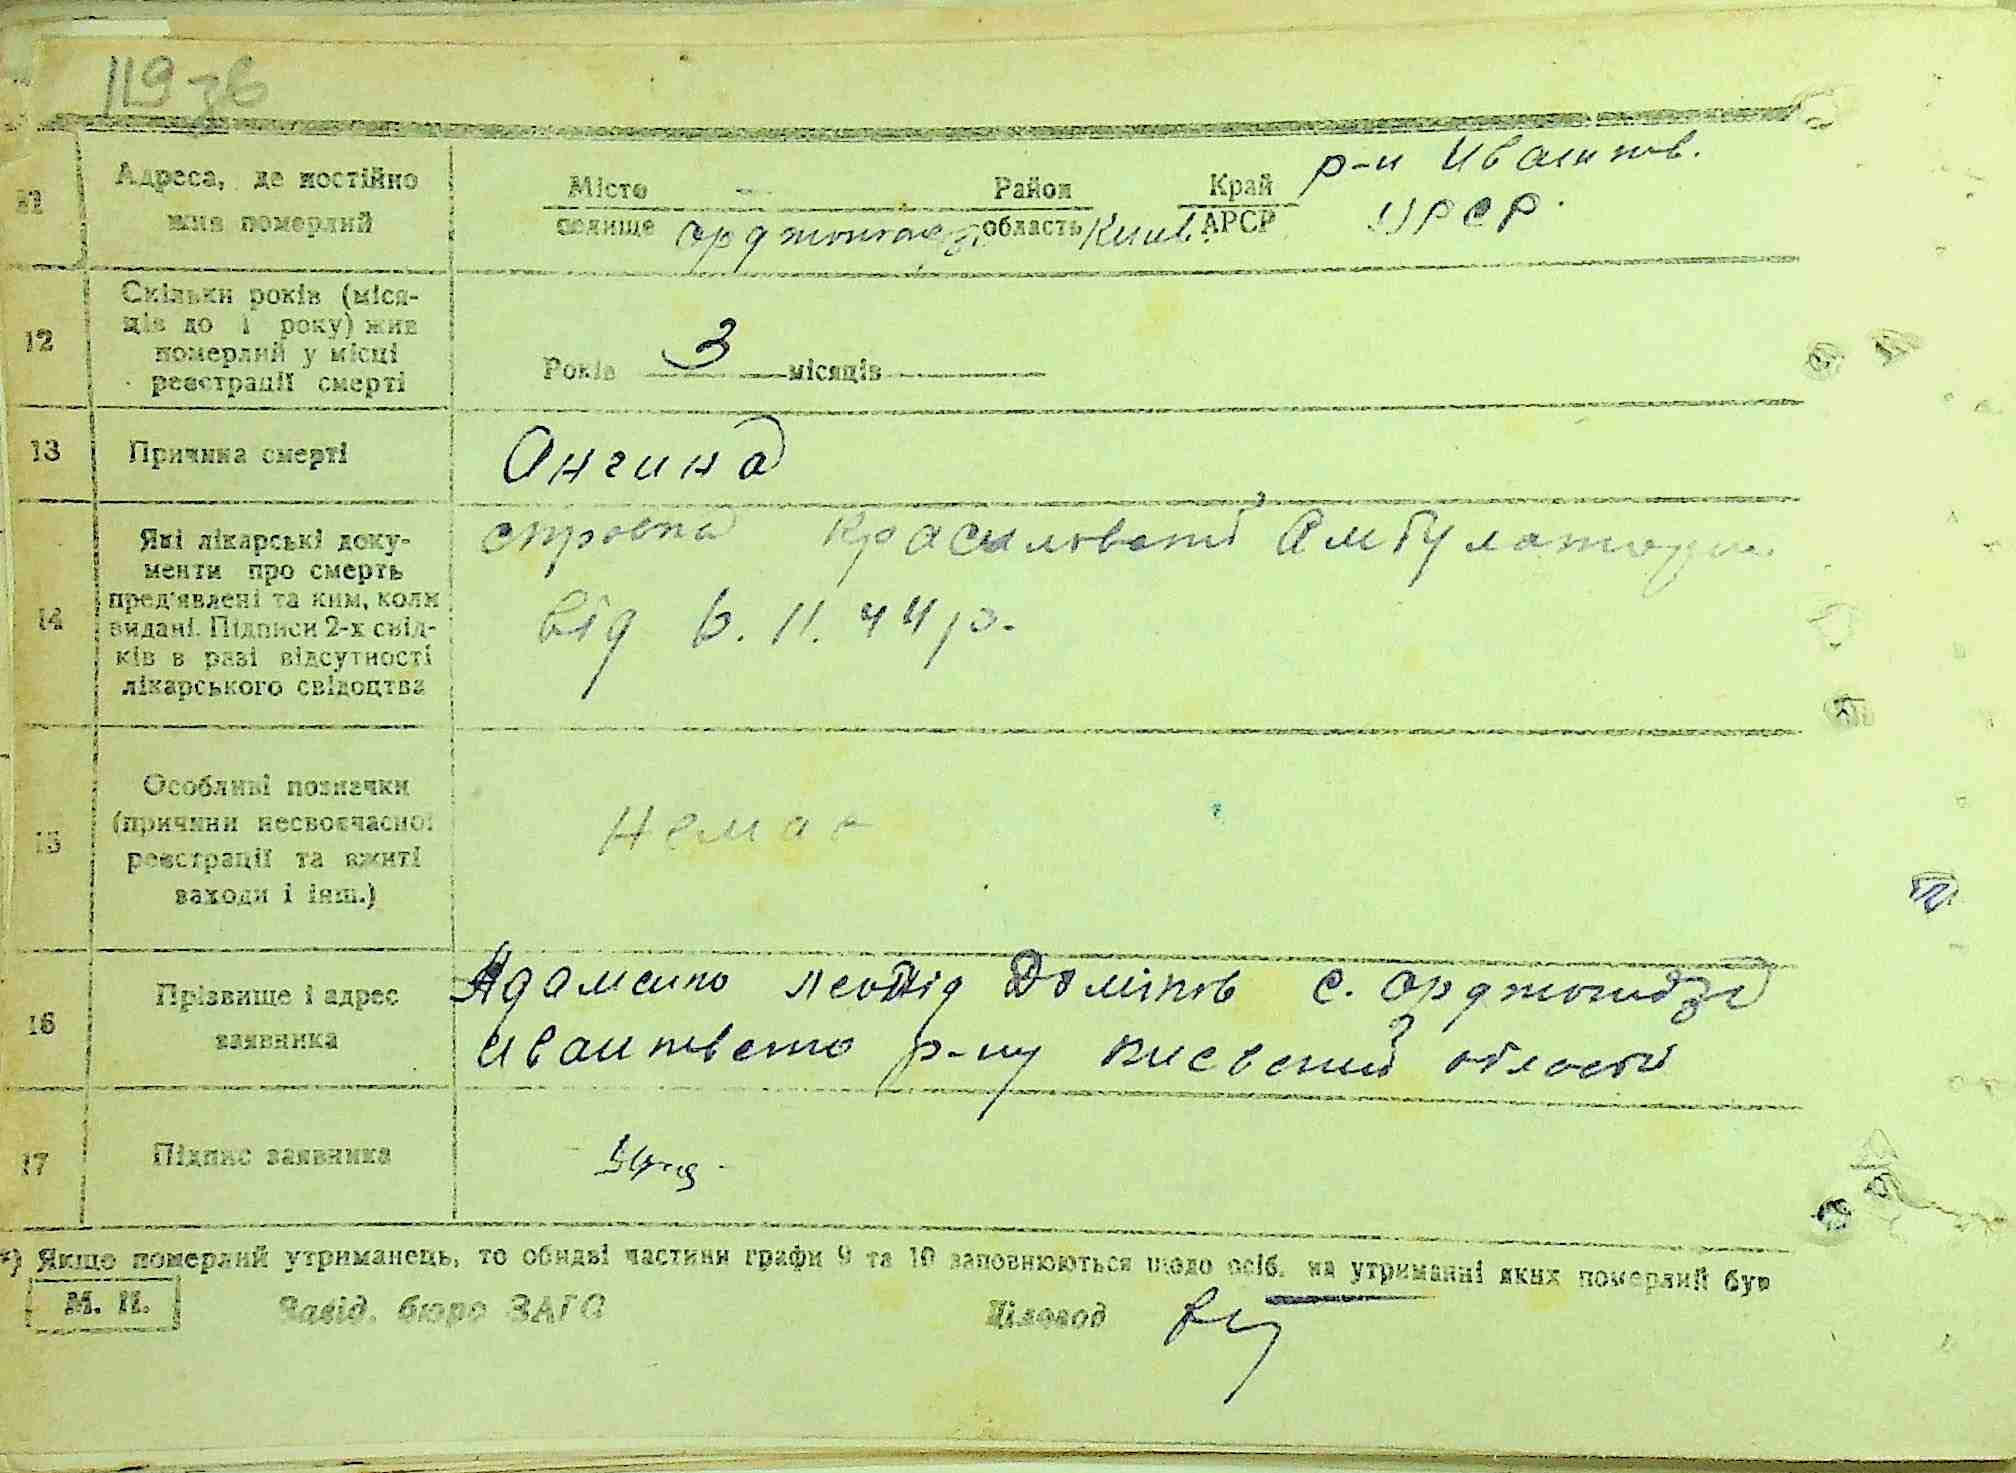 119 зв
11 Адреса, де постійно жив померлий
Місто — Район Край р-н Иванков.
селище Орджоникідзе область Київ. АРСР УРСР.
12 Скільки років (міся-
ців до 1 року) жив
померлий у місці
реєстрації смерті
Років 3 місяців
13 Причина смерті Ангина
14 Які лікарські доку-
менти про смерть
пред'явлені та ким, коли
видані. Підписи 2-х свід-
ків в разі відсутності
лікарського свідоцтва
справка Красиловської Амбулатории
від 6. 11. 44 р.
15 Особливі позначки
(причини несвоєчасної
реєстрації та вжиті
заходи і інш.)
Немає
16 Прізвище і адрес
заявника
Адаменко Леонід с. Орджоникідзе
Иванковського р-ну Київської області
17 Підпис заявника
*) Якщо померлий утриманець, то обидві частини графи 9 та 10 заповнюються щодо осіб, на утриманні яких померлий був
М. П. Завід. бюро ЗАГС Діловод